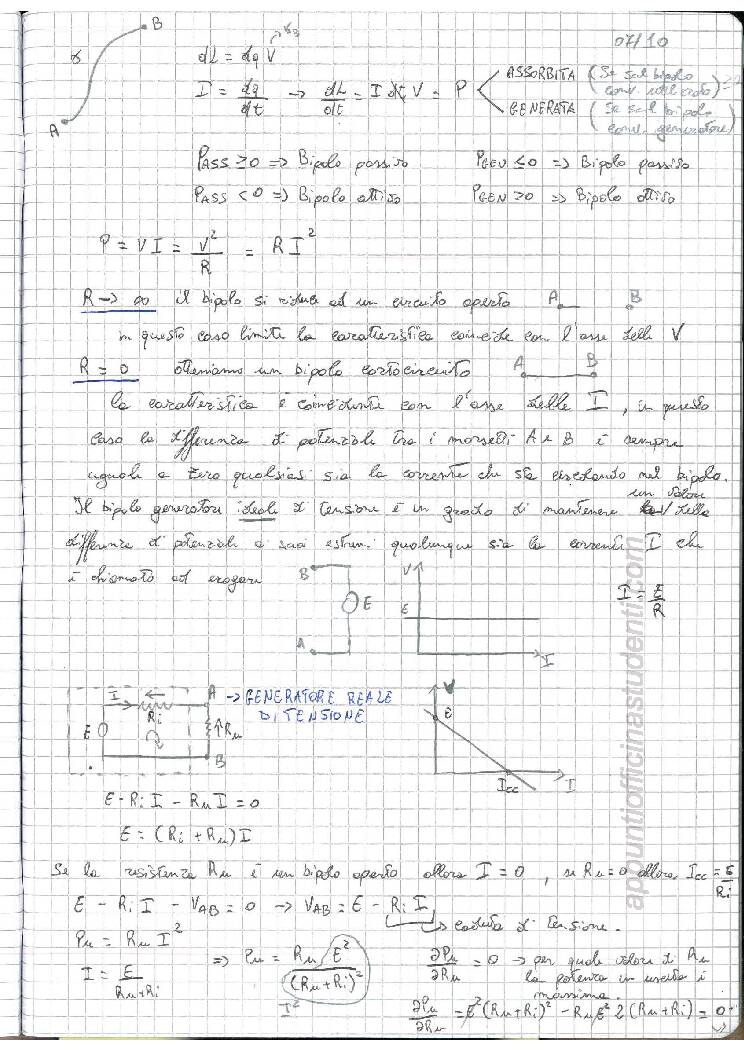 B
07/10
γ
A
dL = dq V
I = dq/dt → dL/dt = I dt V = P
ASSORBITA (Se sul bipolo conv. utilizzato)
GENERATA (Se sul bipolo conv. generatore)
PASS ≥ 0 => Bipolo passivo PGEN ≤ 0 => Bipolo passivo
PASS < 0 => Bipolo attivo PGEN > 0 => Bipolo attivo
P = VI = V²/R = RI²
R → ∞ il bipolo si riduce ad un circuito aperto A B
in questo caso limite la caratteristica coincide con l'asse delle V
R = 0 otteniamo un bipolo cortocircuito A B
la caratteristica è coincidente con l'asse delle I, in questo
caso la differenza di potenziale tra i morsetti A e B è sempre
uguale a zero qualsiasi sia la corrente che sta circolando nel bipolo.
Il bipolo generatore ideale di tensione è in grado di mantenere un valore della
differenza di potenziale ai suoi estremi qualunque sia la corrente I che
è chiamato ad erogare
B E A
V E I
I = E/R
I A → GENERATORE REALE
Ri DI TENSIONE
E ↑Ru
B
V E Icc I
E - Ri I - Ru I = 0
E = (Ri + Ru) I
Se la resistenza Ru è un bipolo aperto allora I = 0, se Ru = 0 allora Icc = E/Ri
E - Ri I - VAB = 0 → VAB = E - Ri I
→ caduta di tensione.
Pu = Ru I²
I = E/(Ru+Ri)
=> Pu = Ru E²/(Ru+Ri)²
I²
∂Pu/∂Ru = 0 → per quale valore di Ru
la potenza in uscita è
massima.
∂Pu/∂Ru = E²(Ru+Ri)² - Ru E² 2(Ru+Ri) = 0
appuntiofficinastudenti.com